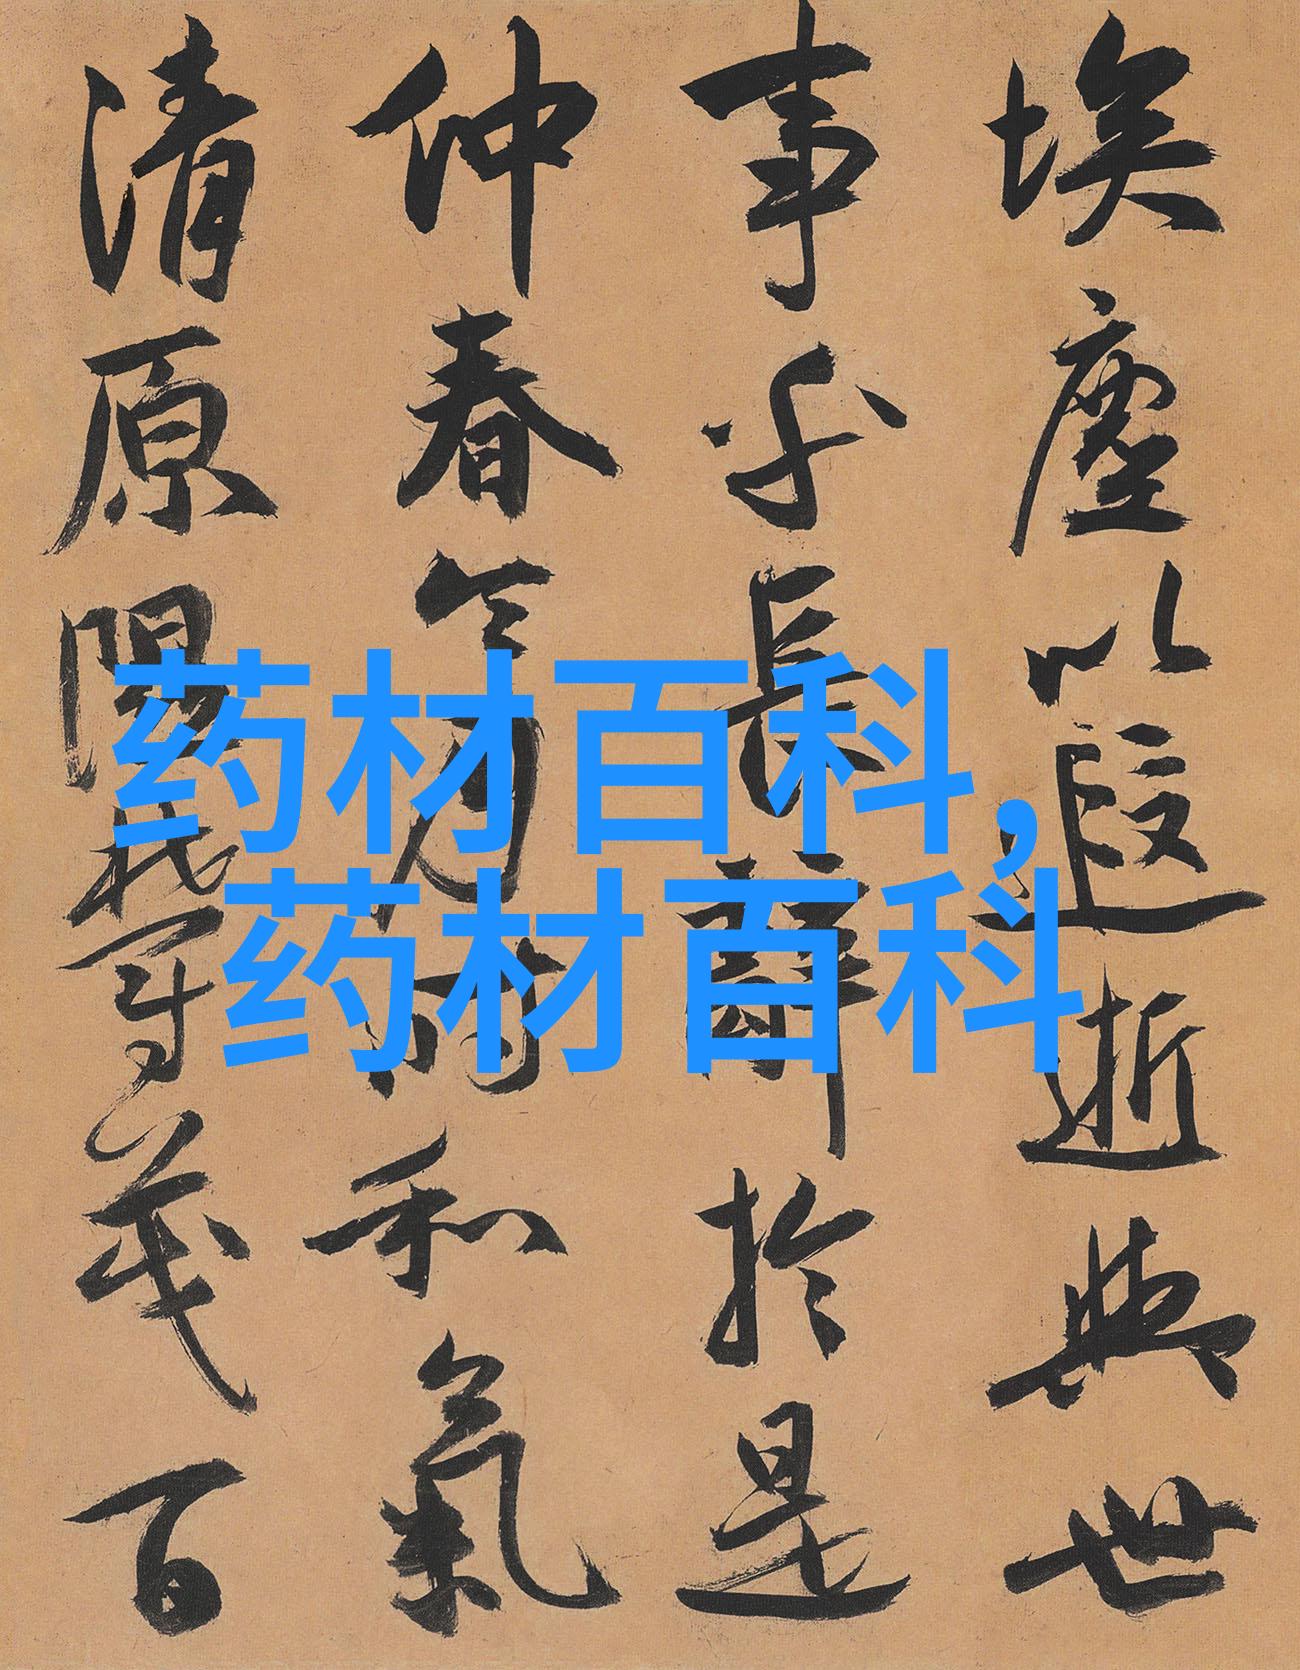 埃塵以遐逝與世
事乎長辭於是
仲春令月時和氣
清原隰鬱茂百
药材百科,
药材百科